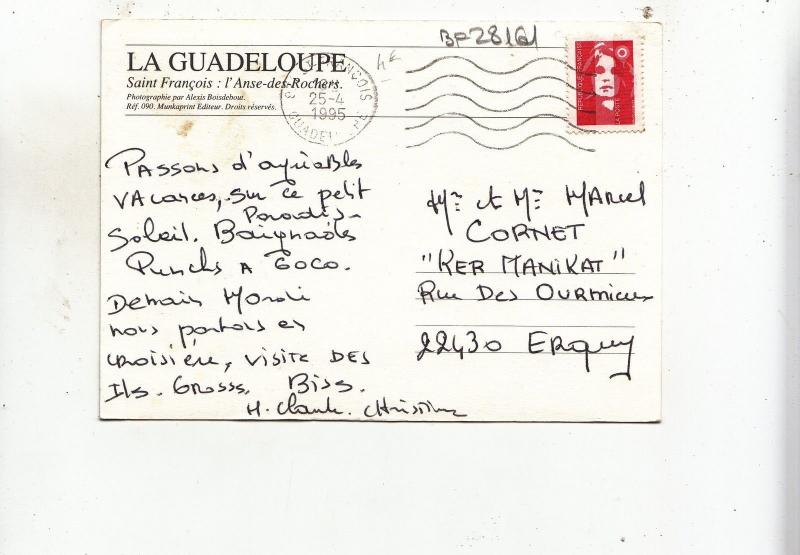 BP28161
LA GUADELOUPE
Saint François : l'Anse-des-Rochers.
Photographie par Alexis Boisdehout.
Réf. 090. Munkaprint Editeur. Droits réservés.
FRANÇOIS
25-4
1995
GUADEL
REPUBLIQUE FRANÇAISE
LA POSTE
Passons d'agréables
vacances, sur ce petit
Paradis
Soleil. Baignades
Punchs A GoGo.
Demain Mardi
nous partons en
croisière, visite des
Ils. Grosss. Biss.
M. Claude. Christine
Mr et Me Marcel
CORNET
"KER MANIKAT"
Rue Des Ourmieux
22430 Erquy